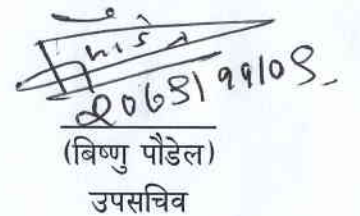 २०७९।११।०९
(बिष्णु पौडेल)
उपसचिव